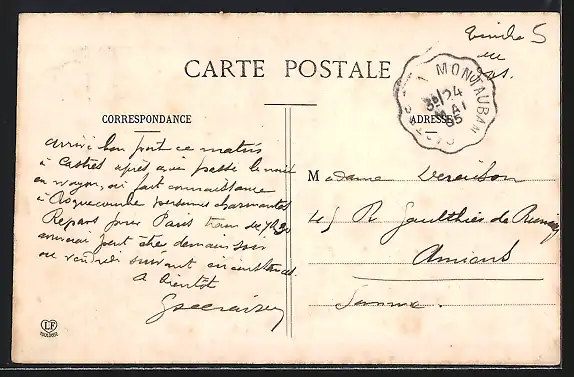 Timbre 5
CARTE POSTALE
MONTAUBAN
24
MAI
05
CORRESPONDANCE
ADRESSE
Arrivé bon port ce matin
à Castres après avoir passé la nuit
en wagon, ai fait connaissance
à Roquecombe personnes charmantes
Repars pour Paris train de 7h30
arriverai peut être demain soir
ou vendredi suivant circonstances.
A bientôt
Madame Veraison
45 R Gaulthier de Rumilly
Amiens
Somme.
LF
TOULOUSE